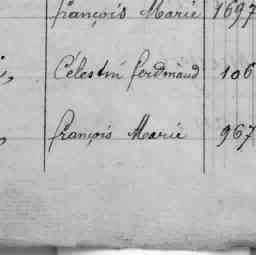 françois Marie 1697
Célestin ferdinand 106
françois Marie 967